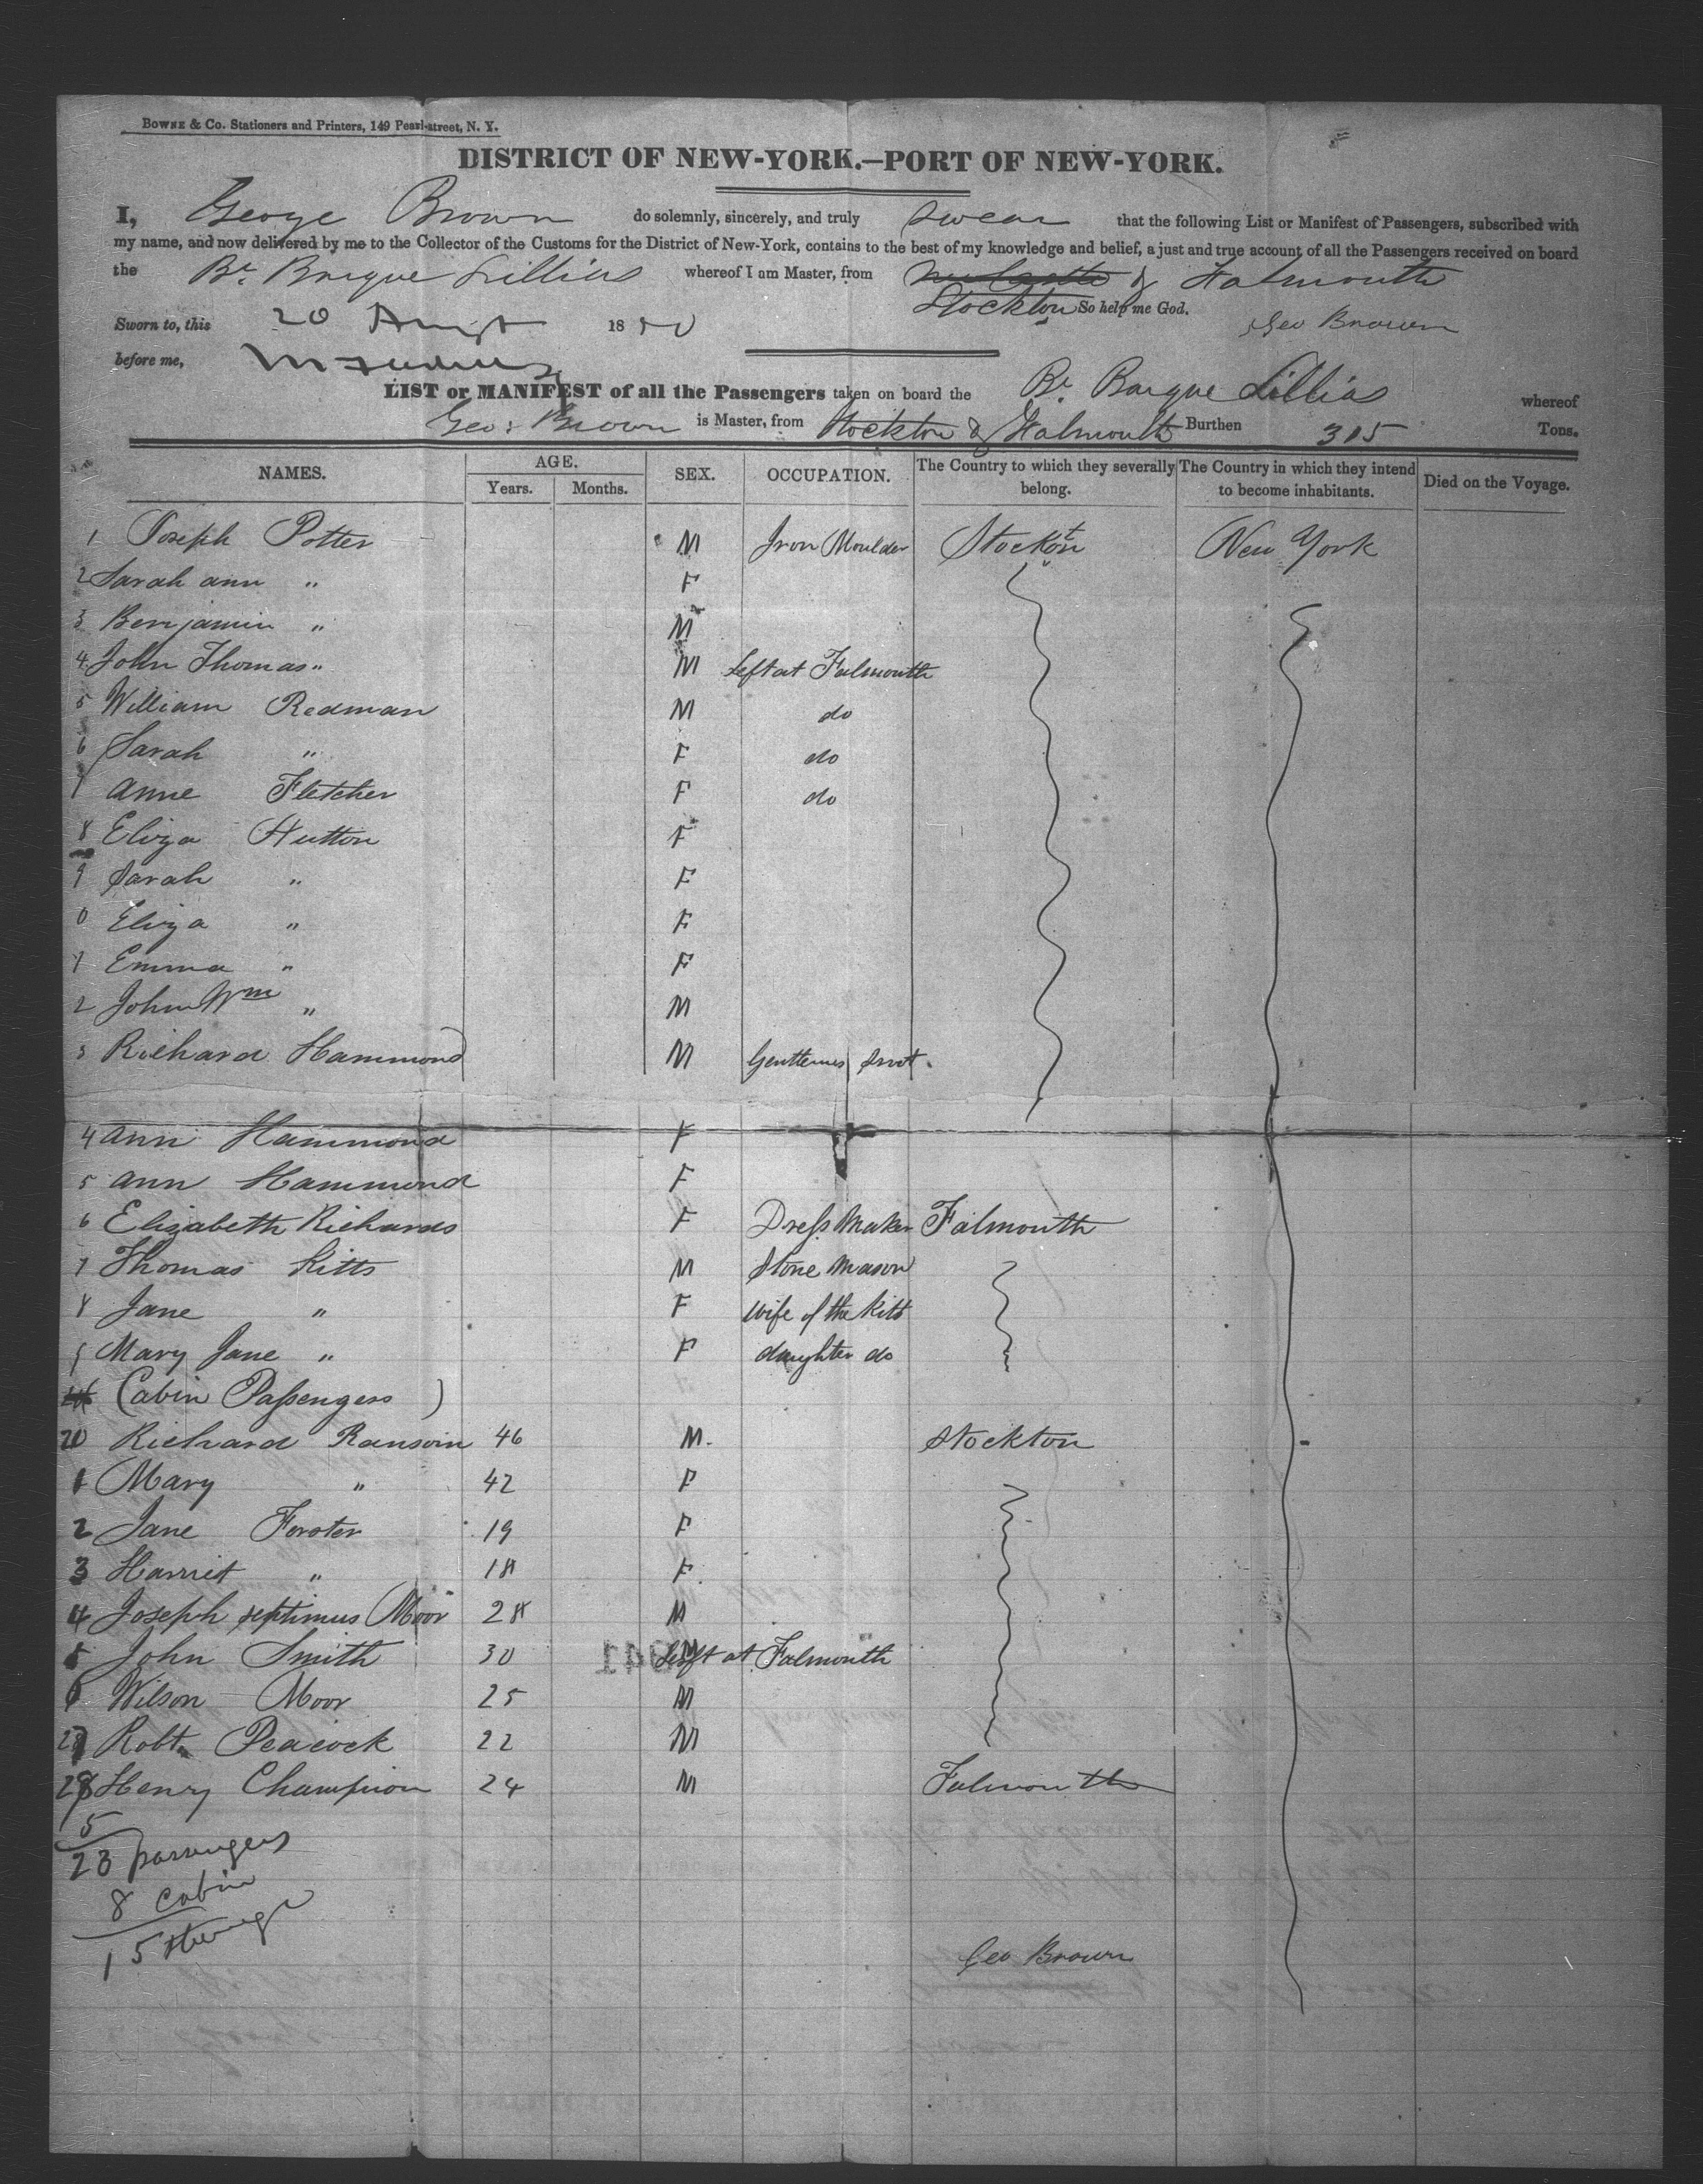 BOWNE & Co. Stationers and Printers, 149 Pearl-street, N. Y.
DISTRICT OF NEW-YORK.—PORT OF NEW-YORK.
I, George Brown do solemnly, sincerely, and truly swear that the following List or Manifest of Passengers, subscribed with
my name, and now delivered by me to the Collector of the Customs for the District of New-York, contains to the best of my knowledge and belief, a just and true account of all the Passengers received on board
the Br. Barque Lillias whereof I am Master, from & Falmouth
Stockton So help me God.
Sworn to, this 20 Augt 1850 Geo Brown
before me,
LIST or MANIFEST of all the Passengers taken on board the Br. Barque Lillias whereof
Geo: Brown is Master, from Stockton & Falmouth Burthen 315 Tons.
NAMES. AGE. Years. Months. SEX. OCCUPATION. The Country to which they severally belong. The Country in which they intend to become inhabitants. Died on the Voyage.
1 Joseph Potter M Iron Moulder Stockton New York
2 Sarah ann " F
3 Benjamin " M
4 John Thomas " M Left at Falmouth
5 William Redman M do
6 Sarah " F do
7 Anne Fletcher F do
8 Eliza Hutton F
9 Sarah " F
0 Eliza " F
1 Emma " F
2 John Wm " M
3 Richard Hammond M Gentlemens Srvt.
4 Ann Hammond F
5 Ann Hammond F
6 Elizabeth Richards F Dress Maker Falmouth
7 Thomas Kitts M Stone Mason
8 Jane " F wife of the Kitts
9 Mary Jane " F daughter do
(Cabin Passengers)
20 Richard Ransom 46 M. Stockton
1 Mary " 42 F
2 Jane Forster 19 F
3 Harriet " 18 F.
4 Joseph Septimus Moor 28 M
5 John Smith 30 Left at Falmouth
6 Wilson Moor 25 M
27 Robt. Peacock 22 M
28 Henry Champion 24 M Falmouth
5
23 passengers
8 Cabin
15 steerage
Geo Brown